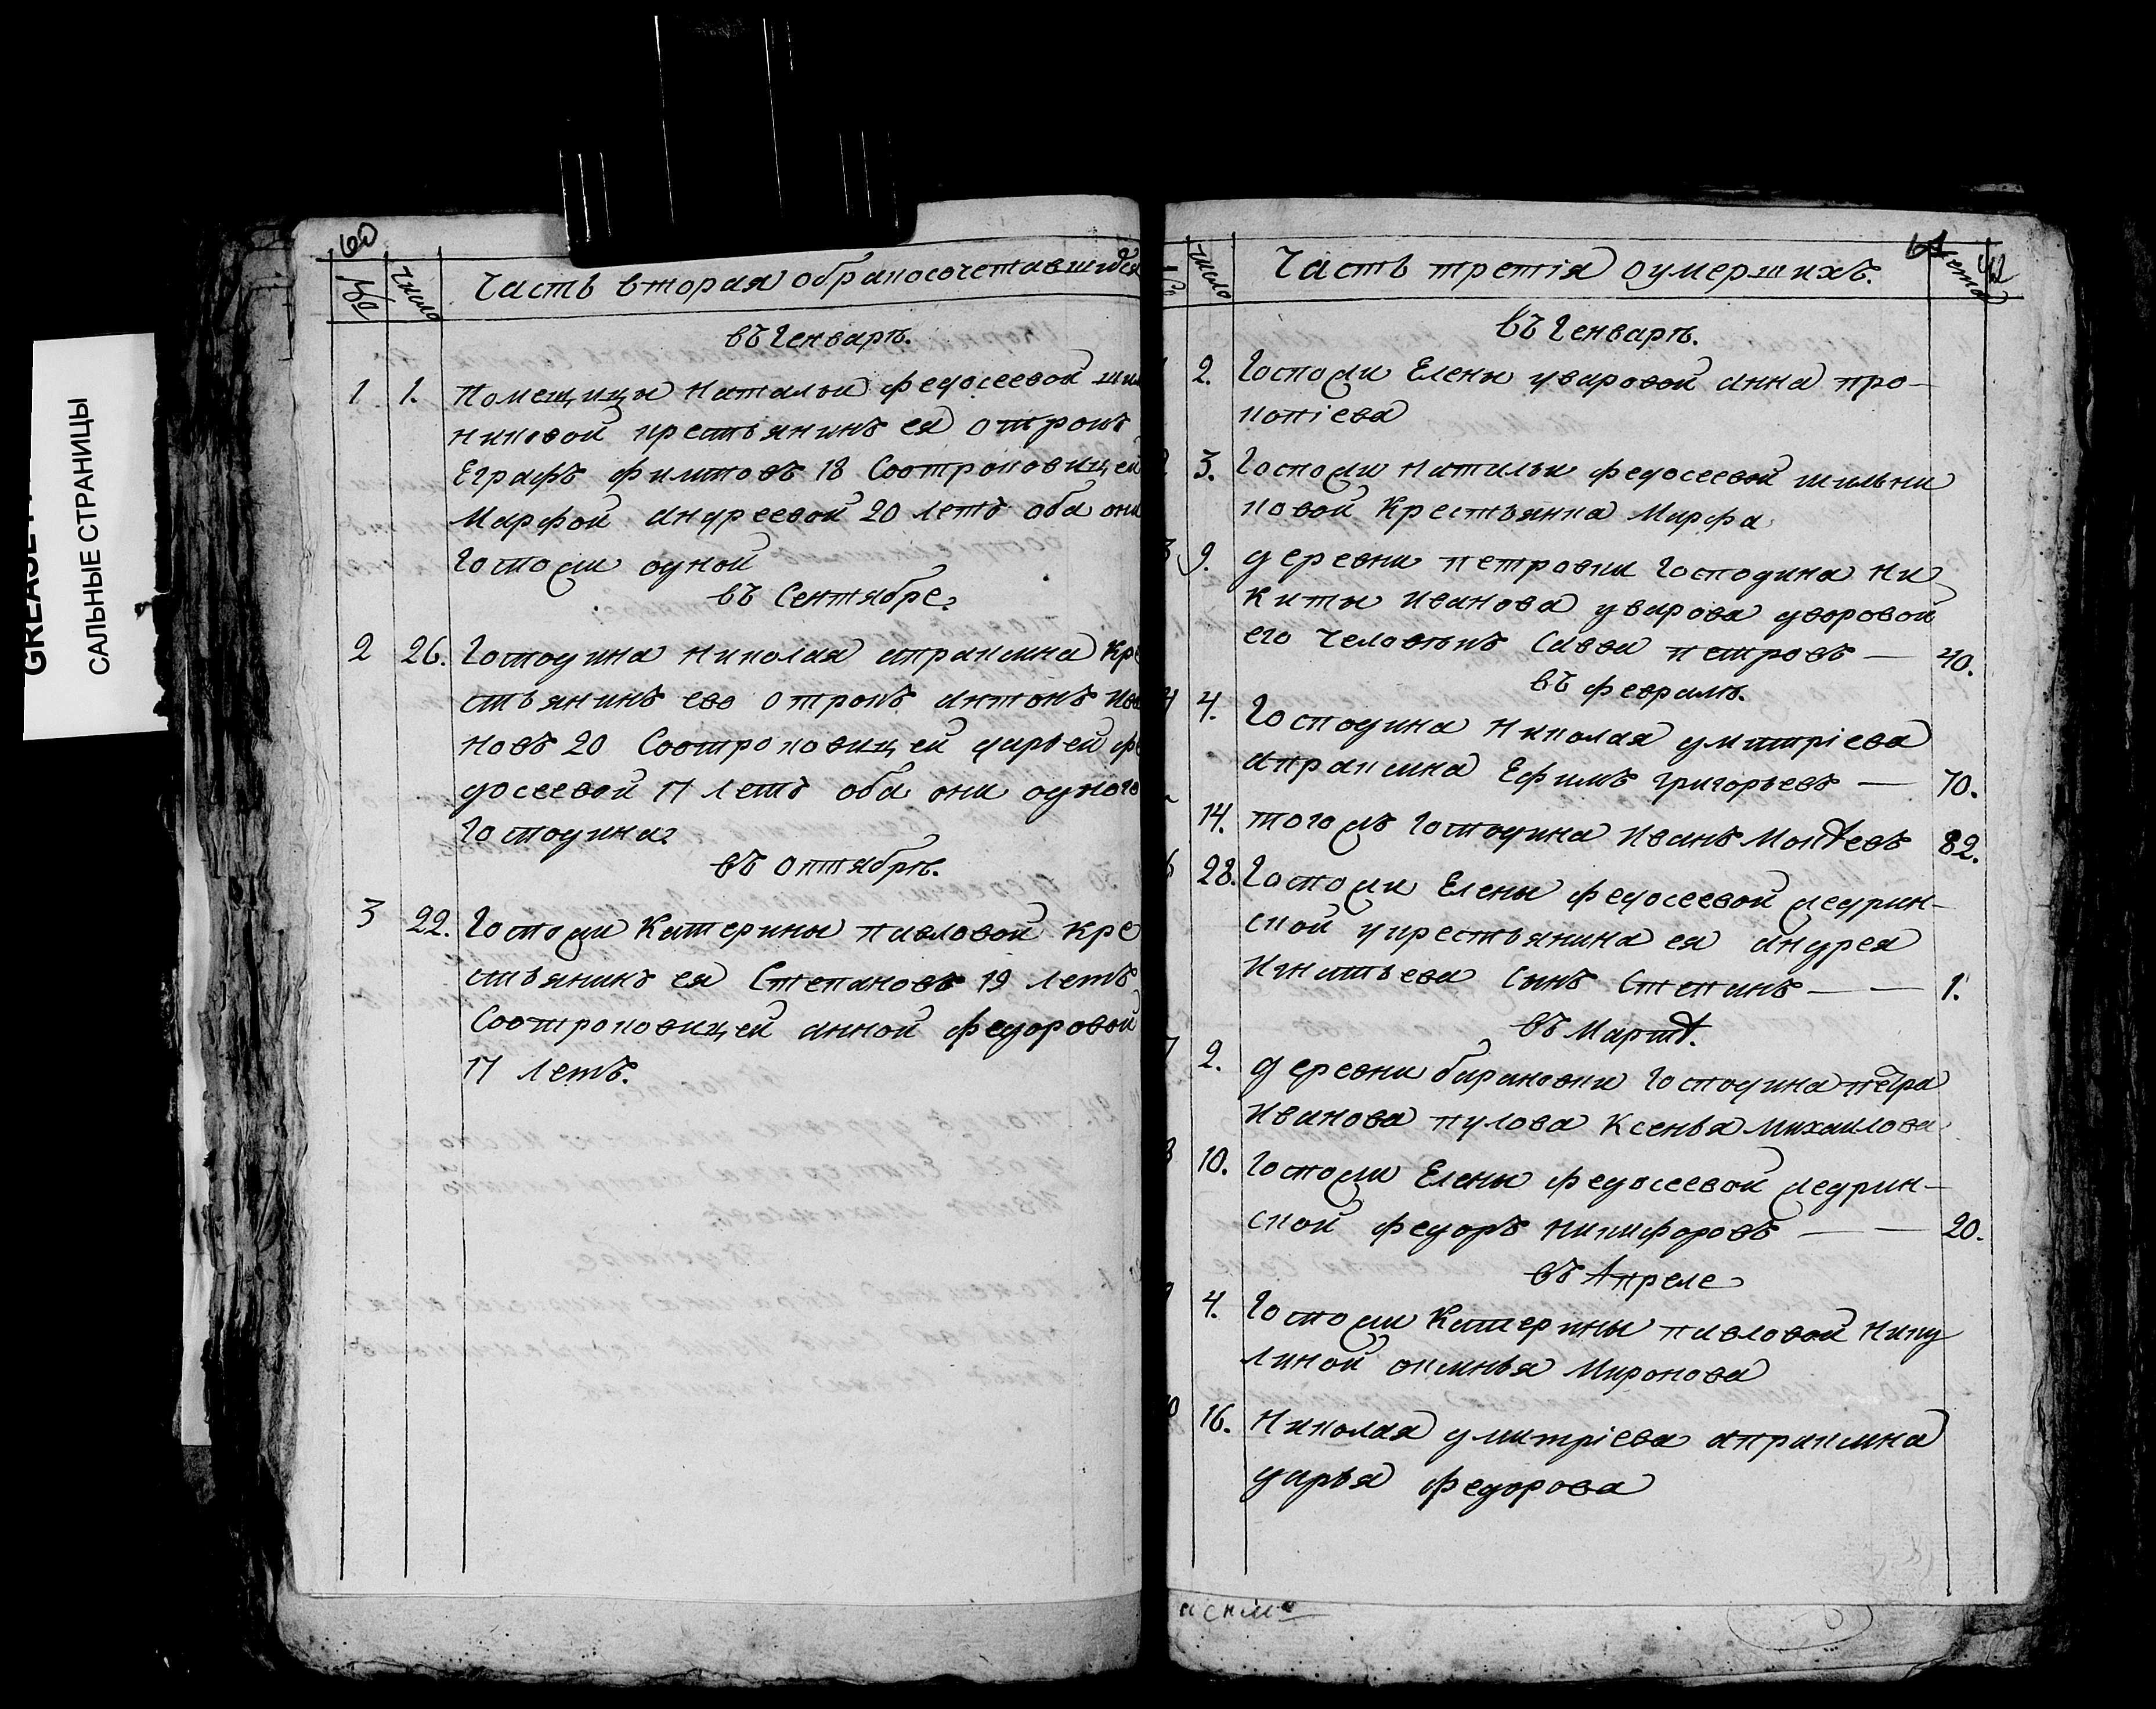 САЛЬНЫЕ СТРАНИЦЫ
60
№ число Часть вторая обракосочетавшихся
въ Генварѣ.
1 1. Помещицы Натальи федосеевой
никовой крестьянинъ ея отрокъ
Еграфъ филиповъ 18 Соотроковицей
Марфой андреевой 20 летъ оба они
Госпожи одной
въ Сентябре.
2 26. Господина Николая апраксина кре
стьянинъ ево отрокъ антонъ Ива
новъ 20 Соотроковицей дарьей фе
досеевой 17 летъ оба они одного
Господина.
въ октябрѣ.
3 22. Госпожи Катерины павловой кре
стьянинъ ея Степановъ 19 летъ
Соотроковицей анной федоровой
17 летъ.
61
число Часть третія оумершихъ. лета
въ Генварѣ.
2. Госпожи Елены уваровой анна про-
копіева
3. Госпожи Натальи федосеевой шильни
ковой Крестьянка Марфа
9. деревни петровки Господина Ни
киты Иванова уварова дворовой
его человѣкъ Савва петровъ — 40.
въ февралѣ.
4 4. Господина Николая дмитріева
апраксина Ефимъ григорьевъ — 70.
14. тогожъ Господина Иванъ Мокѣевъ 82.
6 28. Госпожи Елены федосеевой жедрин-
ской укрестьянина ея андрея
Игнатьева Сынъ Степанъ — — 1.
въ Мартѣ.
7 2. деревни барановки Господина петра
Иванова пулова Ксенья михаилова
8 10. Госпожи Елены федосеевой жедрин-
ской федоръ никифоровъ — — 20.
въ Апреле
9 4. Госпожи Катерины павловой Нику
линой оксинья Миронова
16. Николая дмитріева апраксина
дарья федорова